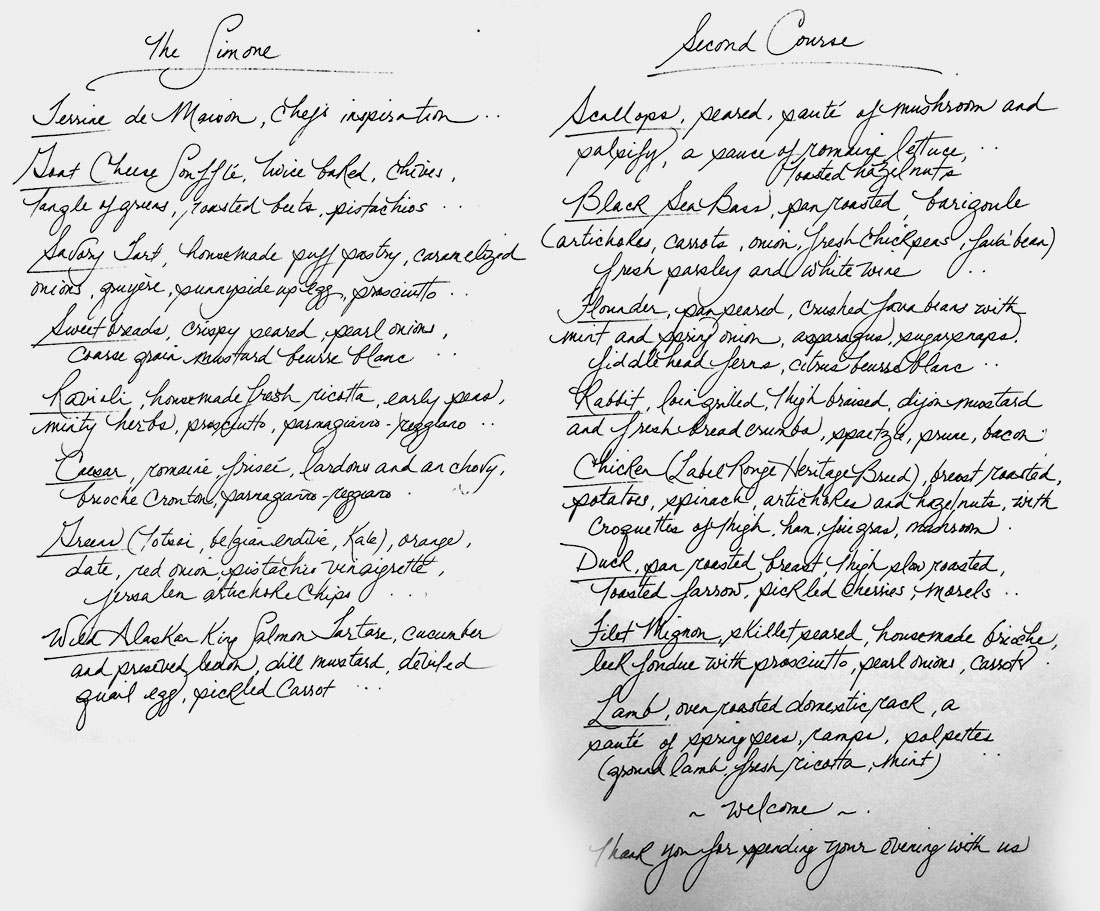 The Simone
Terrine de Maison, chef's inspiration ..
Goat Cheese Soufflé, twice baked, chives,
tangle of greens, roasted beets, pistachios ...
Savory Tart, homemade puff pastry, caramelized
onions, gruyère, sunnyside up egg, prosciutto ...
Sweetbreads, crispy seared, pearl onions,
coarse grain mustard beurre blanc ...
Ravioli, homemade fresh ricotta, early peas,
minty herbs, prosciutto, parmagiano-reggiano ..
Caesar, romaine friseé, lardons and anchovy,
brioche Croutón, parmagiano-reggiano .
Greens (Totsoi, belgian endive, Kale), orange,
date, red onion, pistachio vinaigrette,
jersalen artichoke Chips ....
Wild Alaskan King Salmon Tartare, cucumber
and preserved lemon, dill mustard, deviled
quail egg, pickled Carrot ...
Second Course
Scallops, seared, sauté of mushroom and
salsify, a sauce of romaine lettuce, ..
toasted hazelnuts
Black Sea Bass, pan roasted, barigoule
(artichokes, carrots, onion, fresh chickpeas, fava bean)
fresh parsley and white wine ..
Flounder, pan seared, crushed fava beans with
mint and spring onion, asparagus, sugarsnaps,
fiddlehead ferns, citrus beurre blanc ..
Rabbit, loin grilled, thigh braised, dijon mustard
and fresh bread crumbs, spaetzle, prune, bacon
Chicken (Label Ronge Heritage Breed), breast roasted,
potatoes, spinach, artichokes and hazelnuts, with
croquettes of thigh, ham, foie gras, mushroom .
Duck, pan roasted breast, thigh slow roasted,
toasted farrow, pickled cherries, morels ..
Filet Mignon, skillet seared, housemade brioche,
leek fondue with prosciutto, pearl onions, carrots .
Lamb, oven roasted domestic rack, a
sauté of spring peas, ramps, polpettes
(ground lamb, fresh ricotta, mint) ..
~ Welcome ~ .
Thank you for spending your evening with us